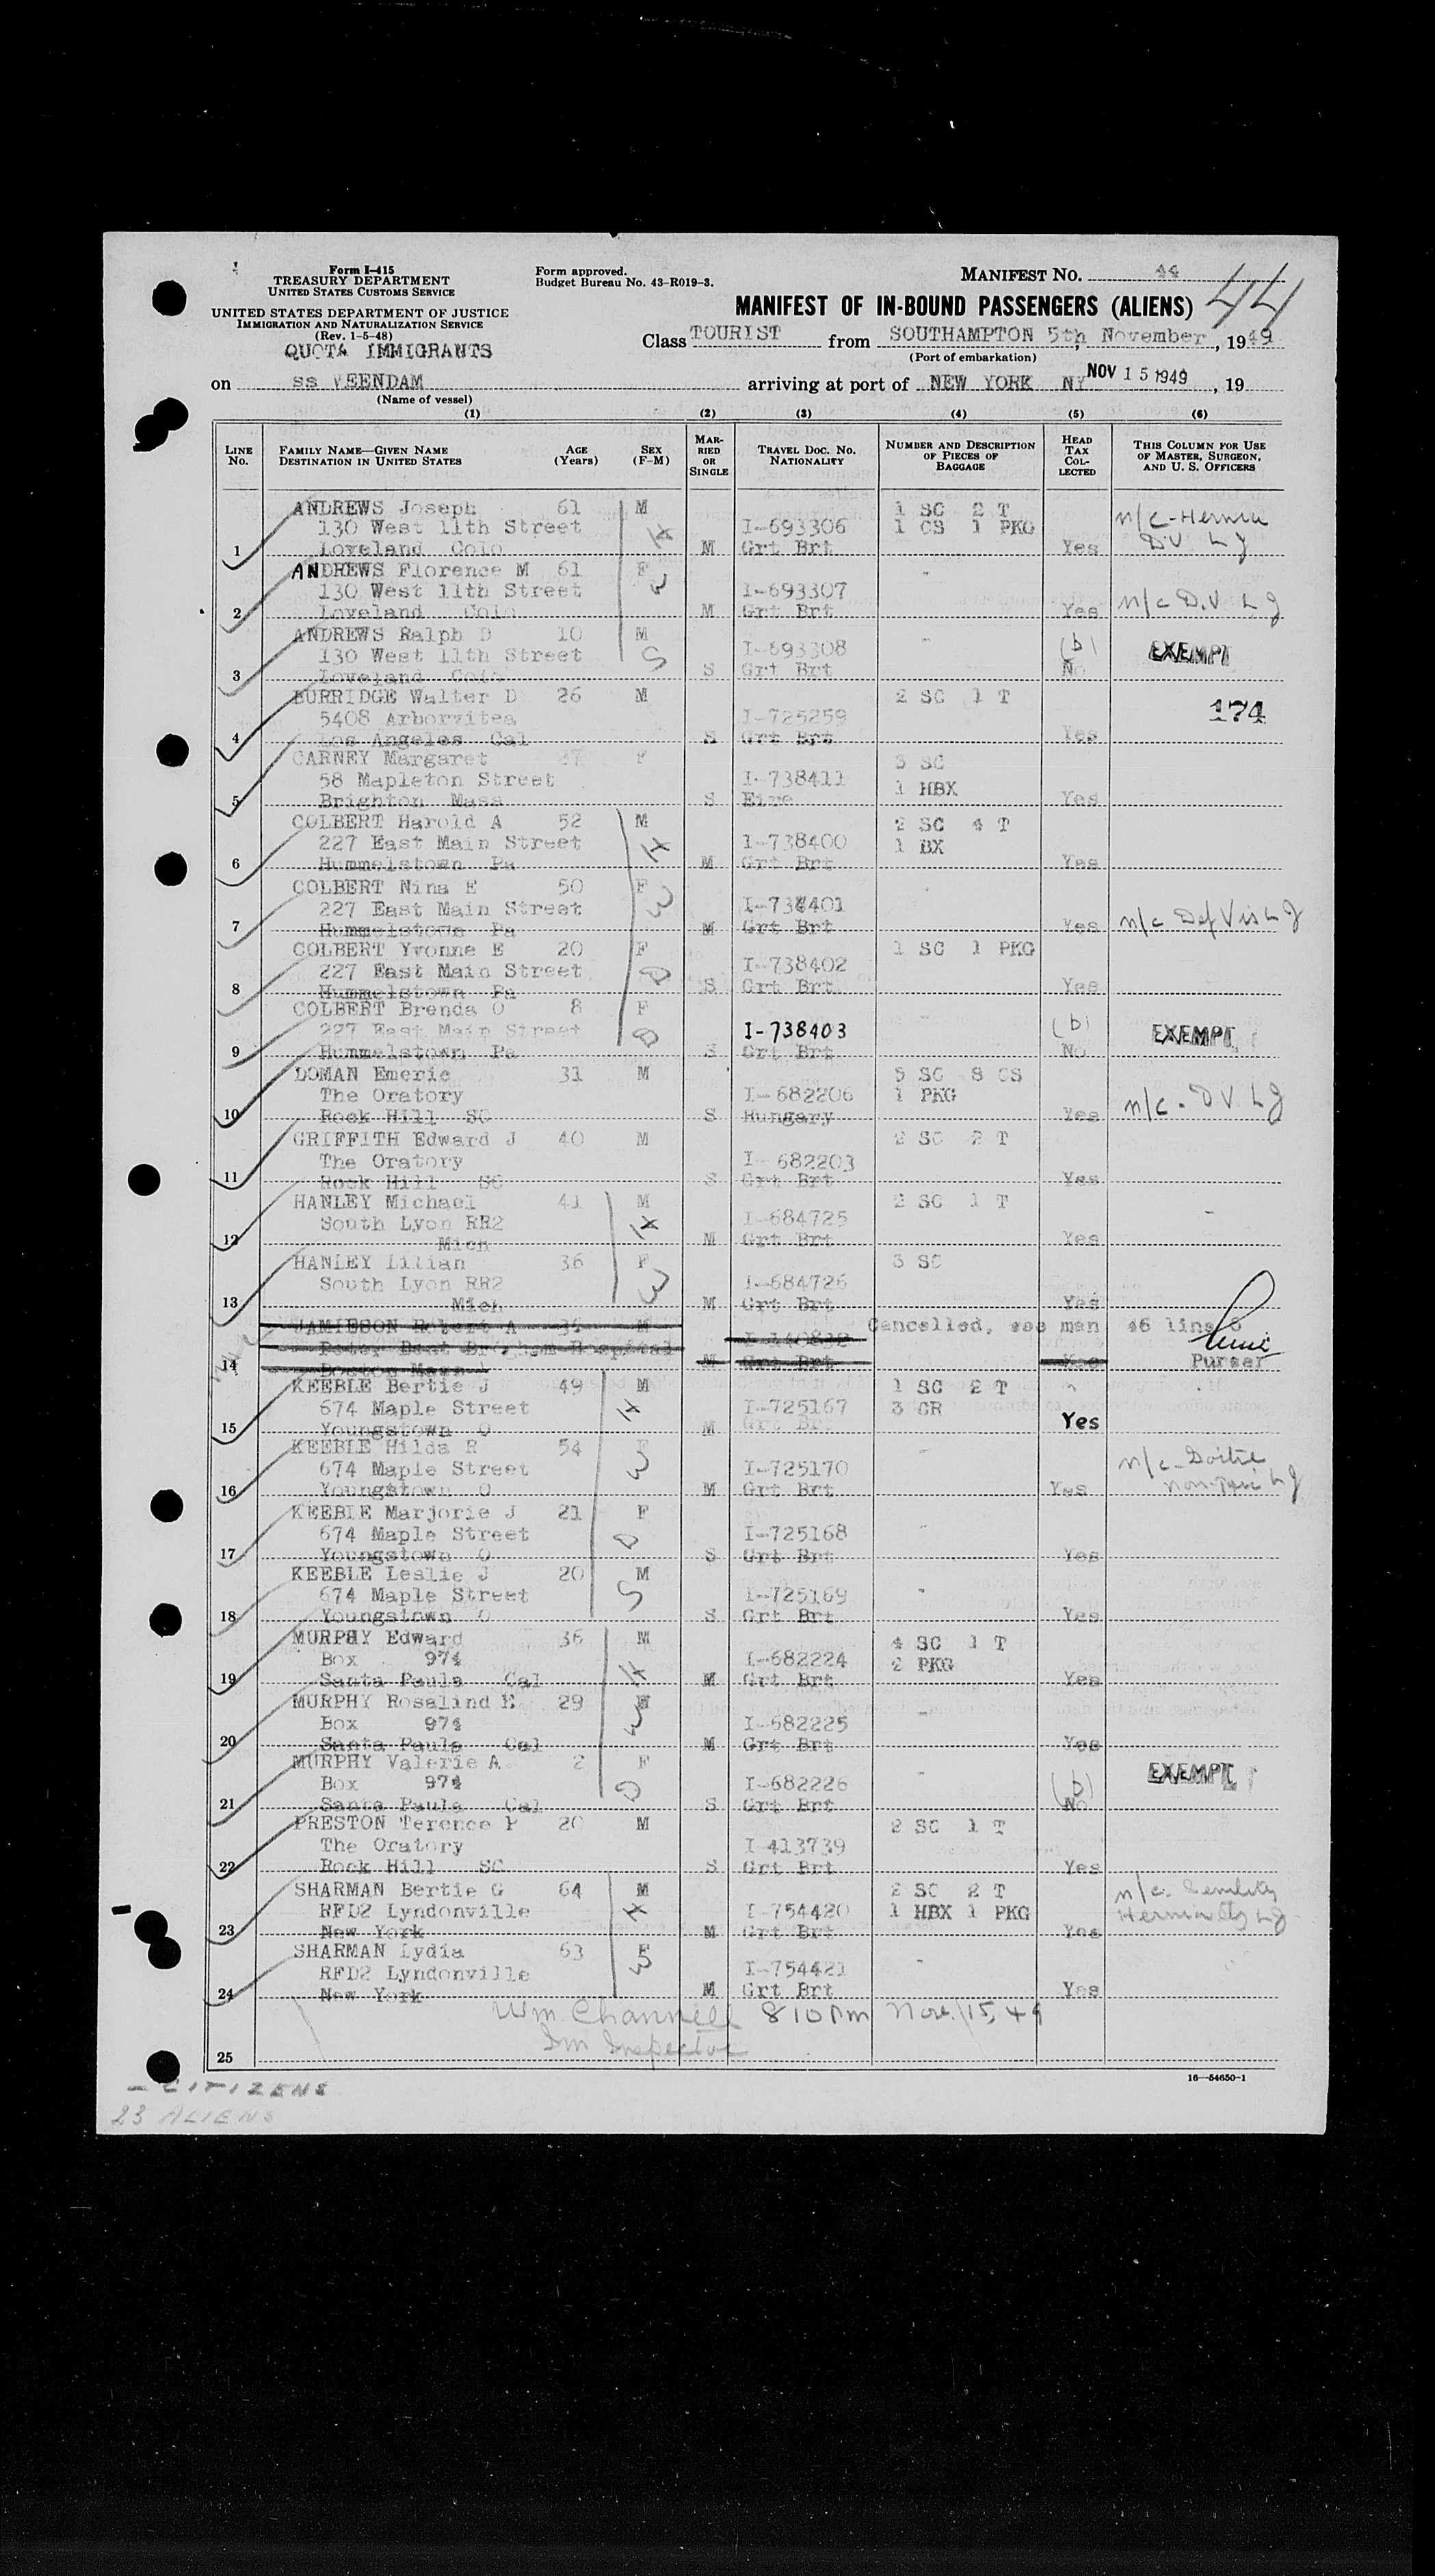 Form I-415
TREASURY DEPARTMENT
UNITED STATES CUSTOMS SERVICE
UNITED STATES DEPARTMENT OF JUSTICE
IMMIGRATION AND NATURALIZATION SERVICE
(Rev. 1-5-48)
QUOTA IMMIGRANTS
Form approved.
Budget Bureau No. 43-R019-3.
MANIFEST NO. 44
44
MANIFEST OF IN-BOUND PASSENGERS (ALIENS)
Class TOURIST from SOUTHAMPTON 5th November, 1949
(Port of embarkation)
on ss VEENDAM arriving at port of NEW YORK NY NOV 15 1949, 19
(Name of vessel)
(1) (2) (3) (4) (5) (6)
LINE No. FAMILY NAME—GIVEN NAME DESTINATION IN UNITED STATES AGE (Years) SEX (F-M) MARRIED OR SINGLE TRAVEL DOC. NO. NATIONALITY NUMBER AND DESCRIPTION OF PIECES OF BAGGAGE HEAD TAX COLLECTED THIS COLUMN FOR USE OF MASTER, SURGEON, AND U. S. OFFICERS
ANDREWS Joseph 61 M 1 SC 2 T
130 West 11th Street H I-693306 1 CS 1 PKG n/c-Hernia
1 Loveland Colo M Grt Brt Yes D.V. LJ
ANDREWS Florence M 61 F -
130 West 11th Street W I-693307
2 Loveland Colo M Grt Brt Yes n/c D.V. LJ
ANDREWS Ralph D 10 M -
130 West 11th Street S I-693308 (b) EXEMPT
3 Loveland Colo S Grt Brt No
BURRIDGE Walter D 26 M 2 SC 1 T
5408 Arborvitea I-725259 174
4 Los Angeles Cal S Grt Brt Yes
CARNEY Margaret 37 F 3 SC
58 Mapleton Street I-738411 1 HBX
5 Brighton Mass S Eire Yes
COLBERT Harold A 52 M 2 SC 4 T
227 East Main Street H I-738400 1 BX
6 Hummelstown Pa M Grt Brt Yes
COLBERT Nina E 50 F -
227 East Main Street W I-738401
7 Hummelstown Pa M Grt Brt Yes n/c Def Vis LJ
COLBERT Yvonne E 20 F 1 SC 1 PKG
227 East Main Street D I-738402
8 Hummelstown Pa S Grt Brt Yes
COLBERT Brenda O 8 F -
227 East Main Street D I-738403 (b) EXEMPT
9 Hummelstown Pa S Grt Brt No
DOMAN Emeric 31 M 5 SC 8 CS
The Oratory I-682206 1 PKG
10 Rock Hill SC S Hungary Yes n/c - D V. LJ
GRIFFITH Edward J 40 M 2 SC 2 T
The Oratory I-682203
11 Rock Hill SC S Grt Brt Yes
HANLEY Michael 41 M 2 SC 1 T
South Lyon RR2 H I-684725 -
12 Mich M Grt Brt Yes
HANLEY Lilian 36 F 3 SC
South Lyon RR2 W I-684726
13 Mich M Grt Brt Yes
JAMIESON Robert A M Cancelled, see man 46 line
Peter Bent Brigham Hospital
14 Boston Mass M Grt Brt Yes Purser
KEEBLE Bertie J 49 M 1 SC 2 T
674 Maple Street H I-725167 3 CR
15 Youngstown O M Grt Brt Yes
KEEBLE Hilda R 54 F -
674 Maple Street W I-725170
16 Youngstown O M Grt Brt Yes
KEEBLE Marjorie J 21 F -
674 Maple Street D I-725168
17 Youngstown O S Grt Brt Yes
KEEBLE Leslie J 20 M -
674 Maple Street S I-725169
18 Youngstown O S Grt Brt Yes
MURPHY Edward 36 M 4 SC 1 T
Box 974 H I-682224 2 PKG
19 Santa Paula Cal M Grt Brt Yes
MURPHY Rosalind E 29 -
Box 974 W I-682225
20 Santa Paula Cal M Grt Brt Yes
MURPHY Valerie A 2 F -
Box 974 D I-682226 (b) EXEMPT
21 Santa Paula Cal S Grt Brt No
PRESTON Terence P 20 M 2 SC 1 T
The Oratory I-413739
22 Rock Hill SC S Grt Brt Yes
SHARMAN Bertie G 64 M 2 SC 2 T n/c. Senility
RFD2 Lyndonville H I-754420 1 HBX 1 PKG Hernia LJ
23 New York M Grt Brt Yes
SHARMAN Lydia 63 F -
RFD2 Lyndonville W I-754421
24 New York M Grt Brt Yes
Wm Channell 8 10 Pm Nov. 15, 49
Im Inspector
25
16—54650-1
- CITIZENS
23 ALIENS